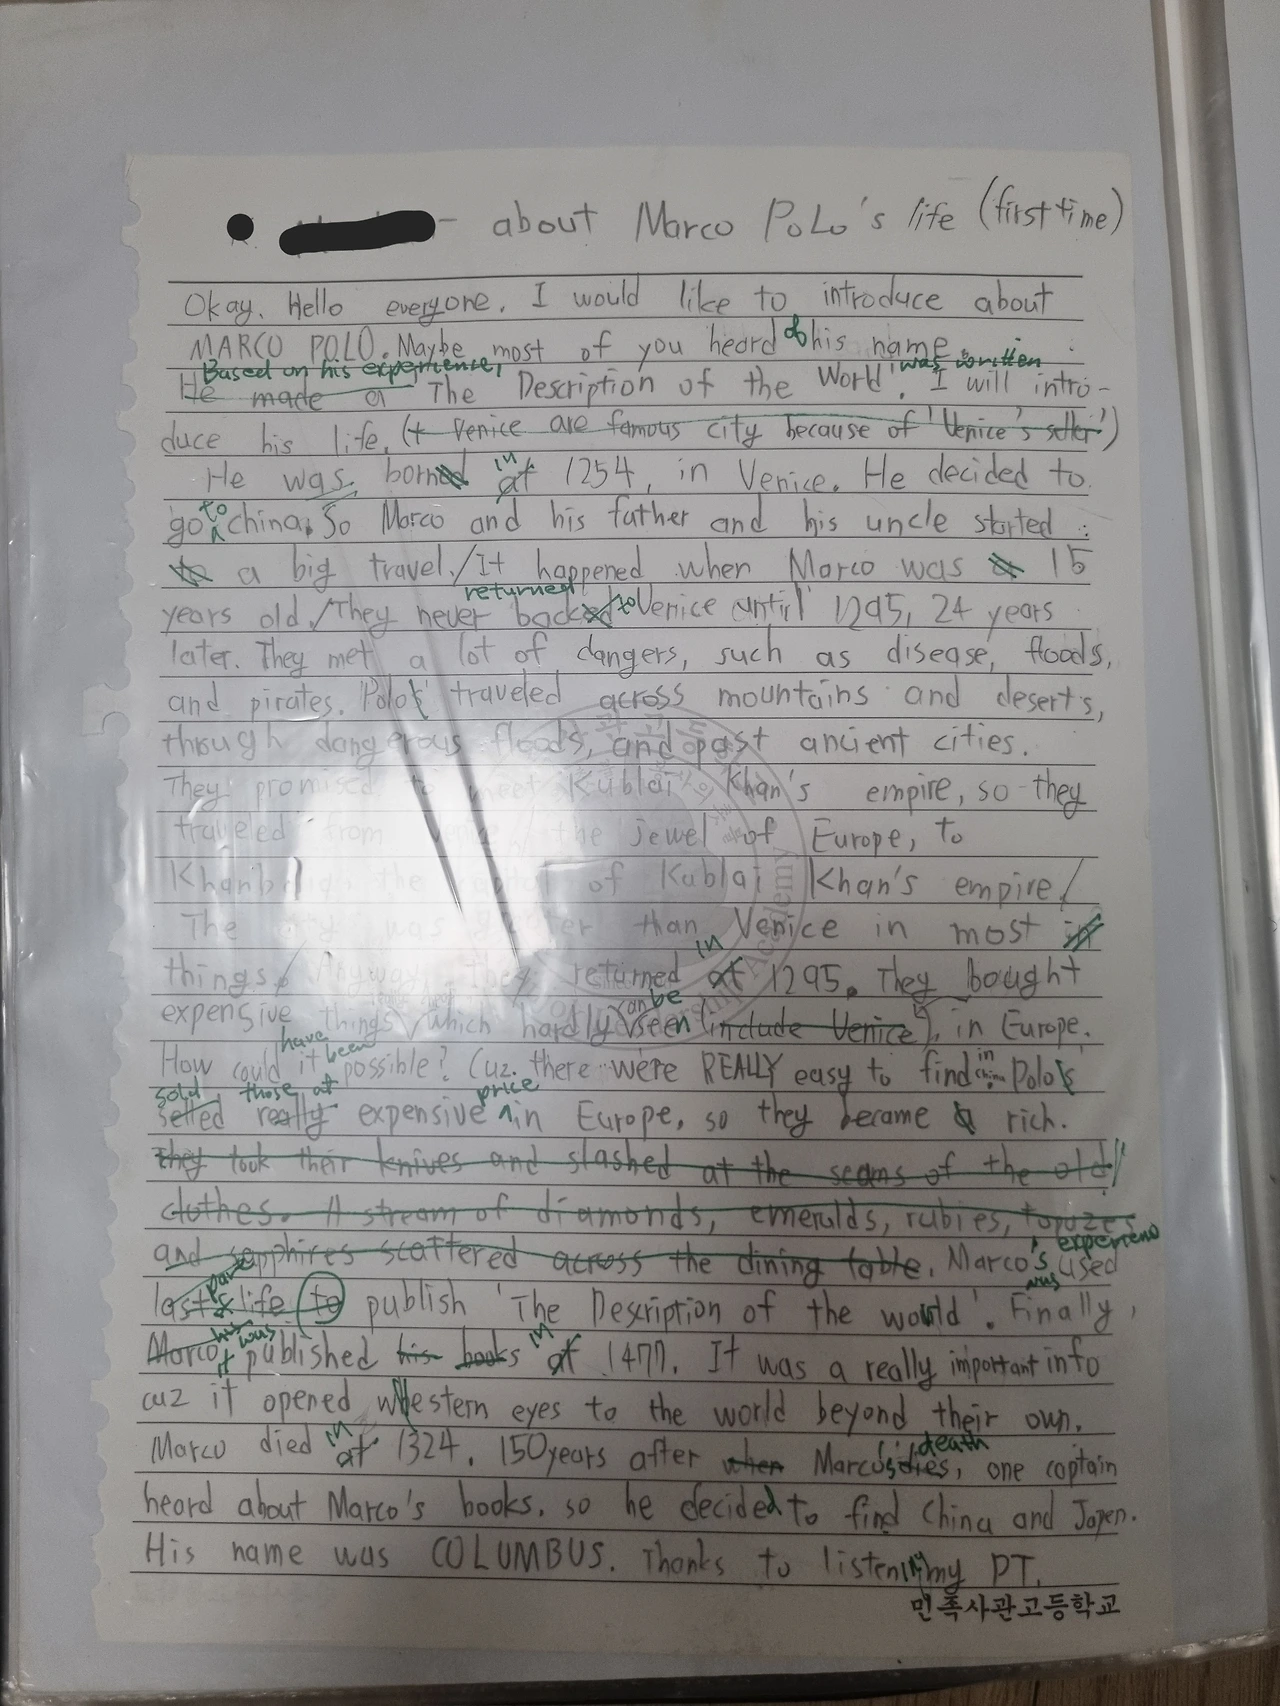 - about Marco PoLo's life (first time)
Okay. Hello everyone. I would like to introduce about
MARCO POLO. Maybe most of you heard of his name.
Based on his experience, was written
He made a The Description of the World'. I will intro-
duce his life. (+ Venice are famous city because of 'Venice's seller')
He was borned in at 1254, in Venice. He decided to
go to china. So Marco and his father and his uncle started
to a big travel. / It happened when Marco was a 15
returned
years old. / They never backed to Venice until 1295, 24 years
later. They met a lot of dangers, such as disease, floods,
and pirates. Polo's traveled across mountains and deserts,
through dangerous floods, and past ancient cities.
They promised to meet Kublai Khan's empire, so they
traveled from Venice, the jewel of Europe, to
the of Kublai Khan's empire /
The was than Venice in most in
in
things / Anyway, they returned at 1295. They bought
can be
expensive things which hardly seen (include Venice), in Europe.
have been
How could it possible? Cuz. there were REALLY easy to find in China Polo's
sold those at price
selled really expensive in Europe, so they became a rich.
they took their knives and slashed at the seams of the old
clothes. A stream of diamonds, emeralds, rubies, topazes
and sapphires scattered across the dining table. Marco's experiene
was used
last life to publish 'The Description of the world'. Finally,
his was in
Marco it published his books at 1477. It was a really important info
cuz it opened western eyes to the world beyond their own.
in death
Marco died at 1324. 150years after when Marco's dies, one captain
heard about Marco's books. so he decided to find China and Japen.
His name was COLUMBUS. Thanks to listening my PT.
민족사관고등학교